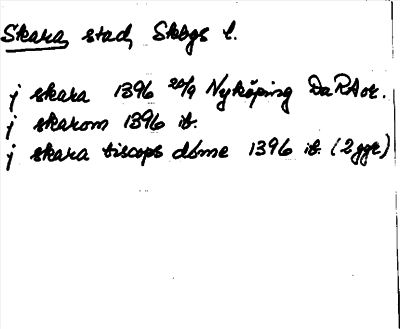 Skara, stad, Skbgs l.
j skara 1396 20/9 Nyköping DaRA or.
j skarom 1396 ib.
j skara biscops döme 1396 ib. (2 ggr)